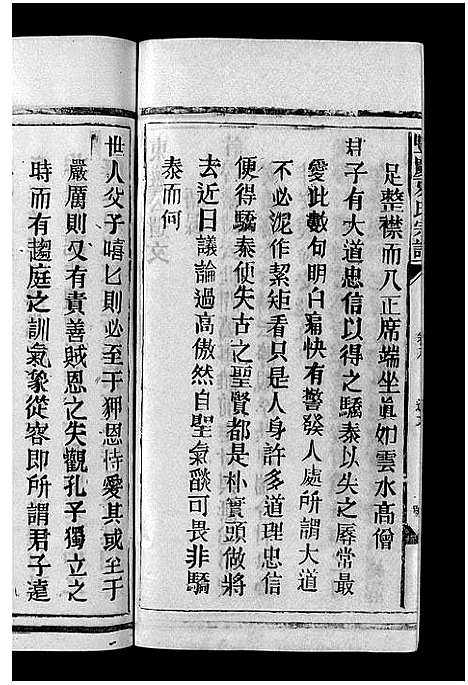 足整襟而入正席端坐眞如雲水高僧
君子有大道忠信以得之驕泰以失之辱常最
愛此數句明白痛快有警發人處所謂大道
不必泥作絜矩看只是人身許多道理忠信
便得驕泰便失古之聖賢都是朴實頭做將
去近日議論過高傲然自聖氣燄可畏非驕
泰而何
世人父子嘻匕則必至于狎恩恃愛其或至于
嚴厲則又有責善賊恩之失觀孔子獨立之
時而有趨庭之訓氣象從容即所謂君子遠